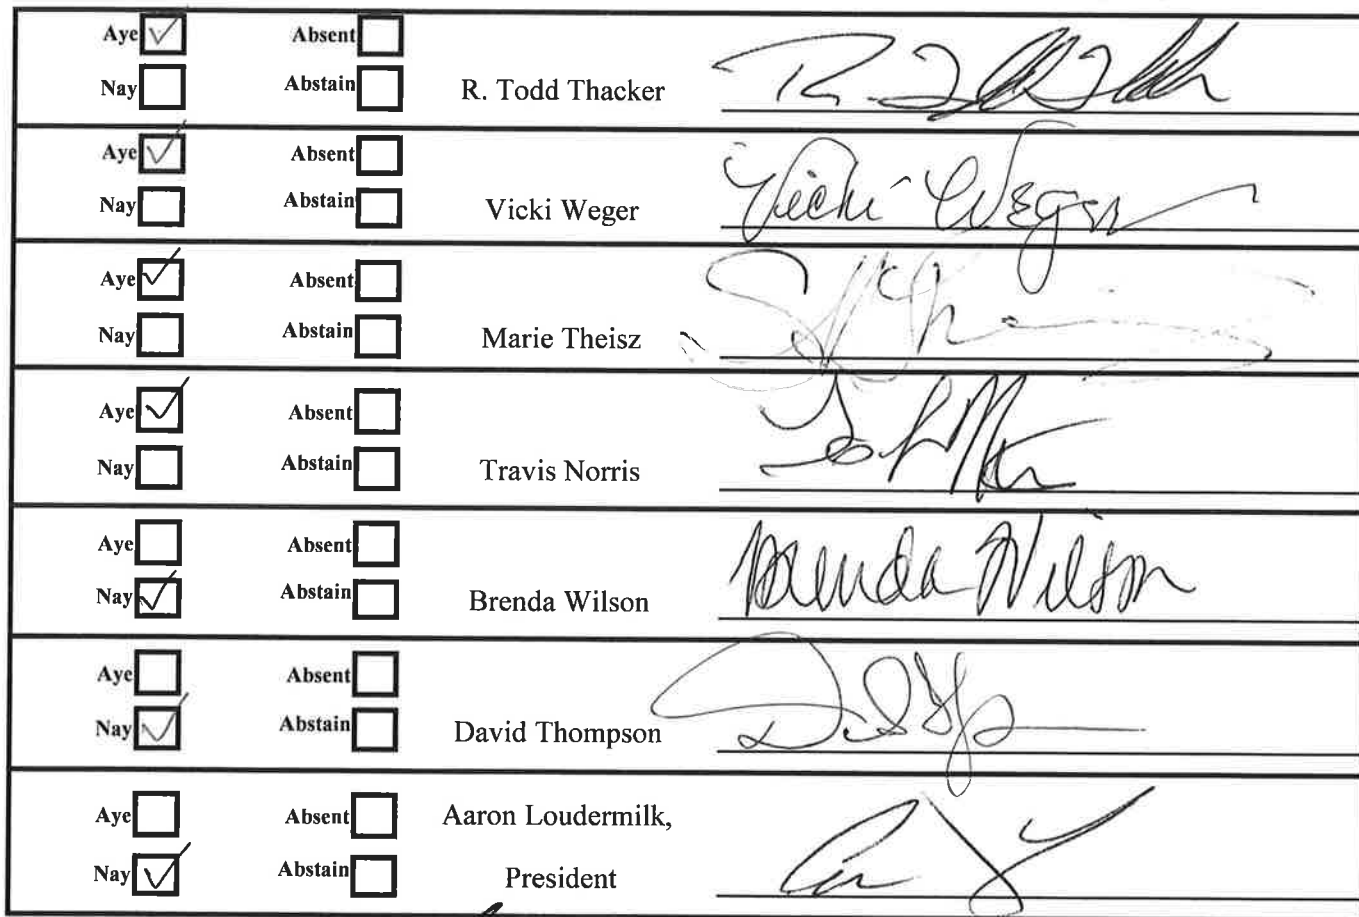 Aye Absent
Nay Abstain R. Todd Thacker R. Todd Thacker
Aye Absent
Nay Abstain Vicki Weger Vicki Weger
Aye Absent
Nay Abstain Marie Theisz
Aye Absent
Nay Abstain Travis Norris
Aye Absent
Nay Abstain Brenda Wilson Brenda Wilson
Aye Absent
Nay Abstain David Thompson
Aye Absent Aaron Loudermilk,
Nay Abstain President